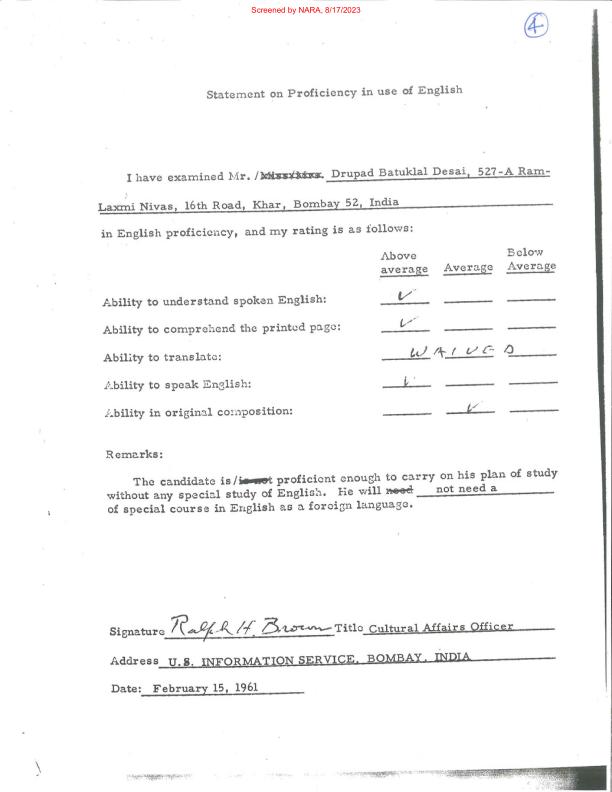 Screened by NARA, 8/17/2023
4
Statement on Proficiency in use of English
I have examined Mr. / Drupad Batuklal Desai, 527-A Ram-
Laxmi Nivas, 16th Road, Khar, Bombay 52, India
in English proficiency, and my rating is as follows:
Above average Average Below Average
Ability to understand spoken English: ✓
Ability to comprehend the printed page: ✓
Ability to translate: WAIVED
Ability to speak English: ✓
Ability in original composition: ✓
Remarks:
The candidate is/is not proficient enough to carry on his plan of study
without any special study of English. He will need not need a
of special course in English as a foreign language.
Signature Ralph H. Brown Title Cultural Affairs Officer
Address U.S. INFORMATION SERVICE, BOMBAY, INDIA
Date: February 15, 1961